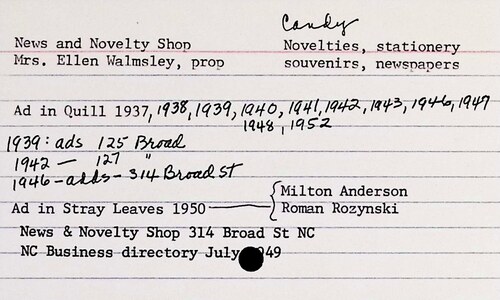 Candy
News and Novelty Shop Novelties, stationery
Mrs. Ellen Walmsley, prop souvenirs, newspapers
Ad in Quill 1937, 1938, 1939, 1940, 1941, 1942, 1943, 1946, 1947
1948, 1952
1939: ads 125 Broad
1942 — 127 "
1946 - adds - 314 Broad St
Milton Anderson
Ad in Stray Leaves 1950 Roman Rozynski
News & Novelty Shop 314 Broad St NC
NC Business directory July 49